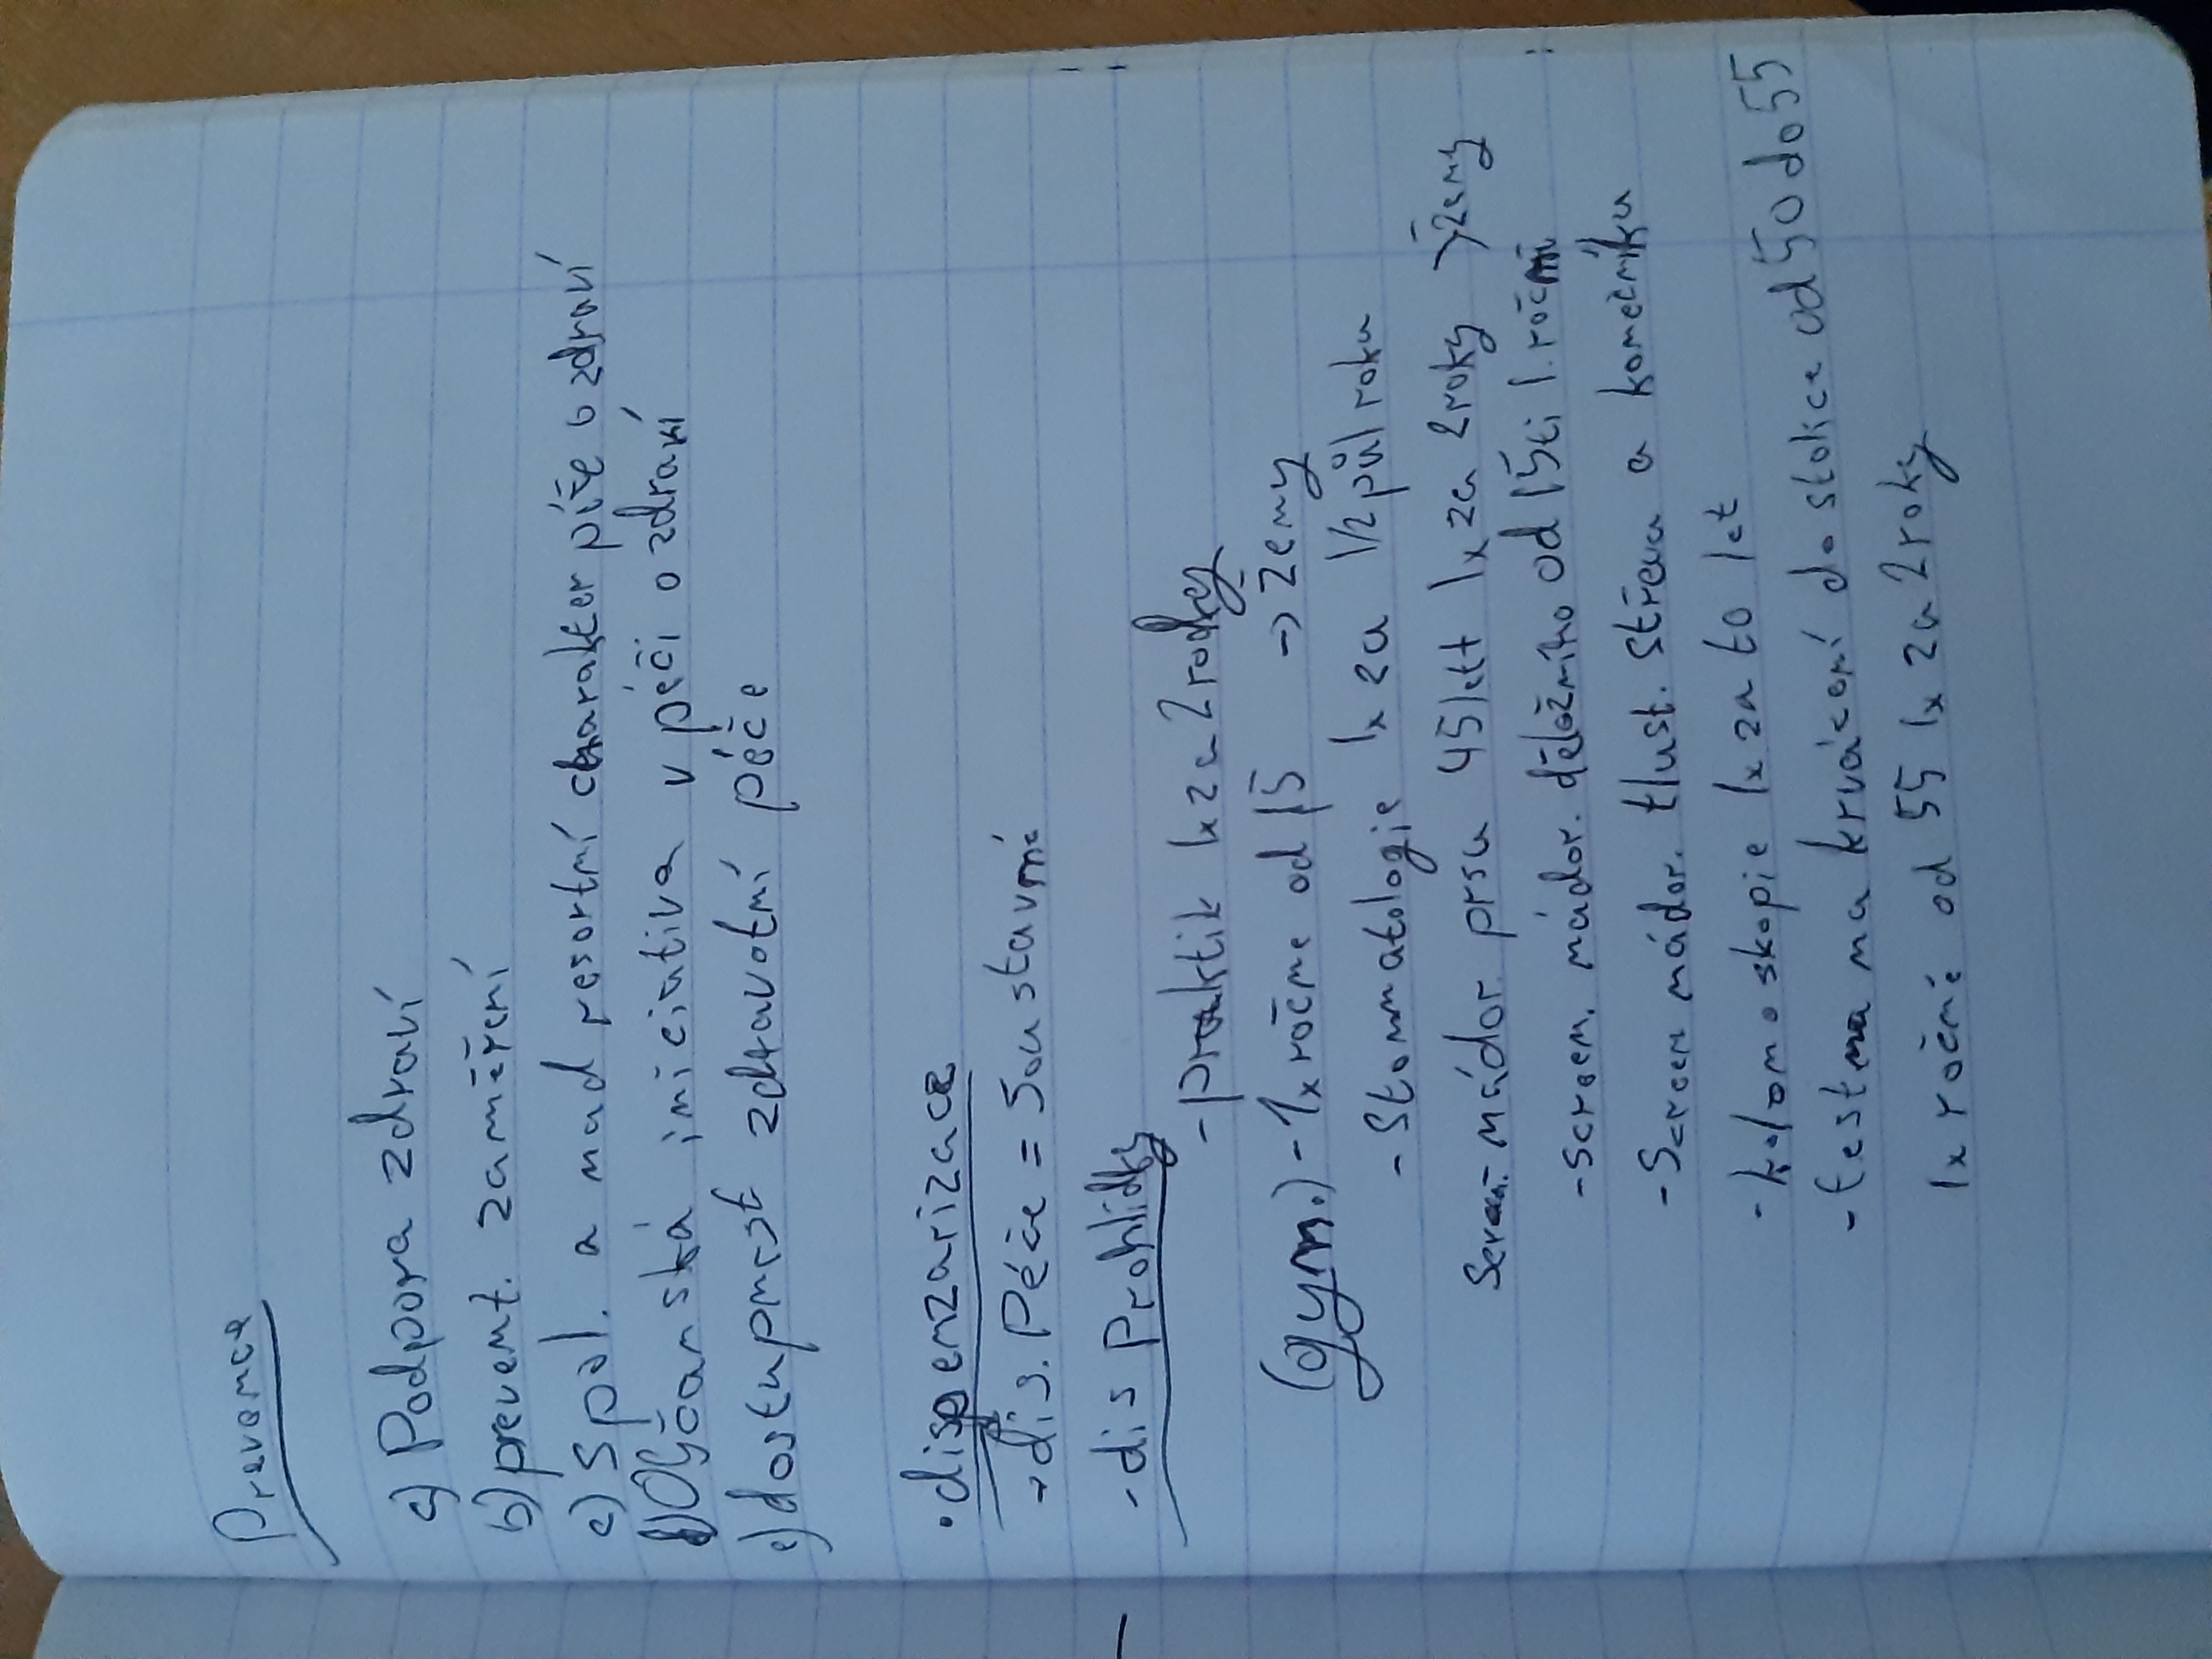 Prevence
a) Podpora zdraví
b) prevent. zaměření
c) spol. a nad resortní charakter péče o zdraví
d) Občanská iniciativa v péči o zdraví
e) dostupnost zdravotní péče
• dispenzarizace
→ dis. Péče = Soustavné
- dis Prohlídky
- praktik 1x za 2 roky
(gyn.) - 1x ročne od 15 → ženy
- Stomatologie 1x za 1/2 půl roku
Screen. nádor. prsu 45 lett 1x za 2 roky > ženy
- Screen. nádor. děložního od 15ti 1. ročni
- Screen nádor. tlust. střeva a konečníku
- kolonoskopie 1x za 10 let
- test na krvácení do stolice od 50 do 55
1x ročně od 55 1x za 2 roky